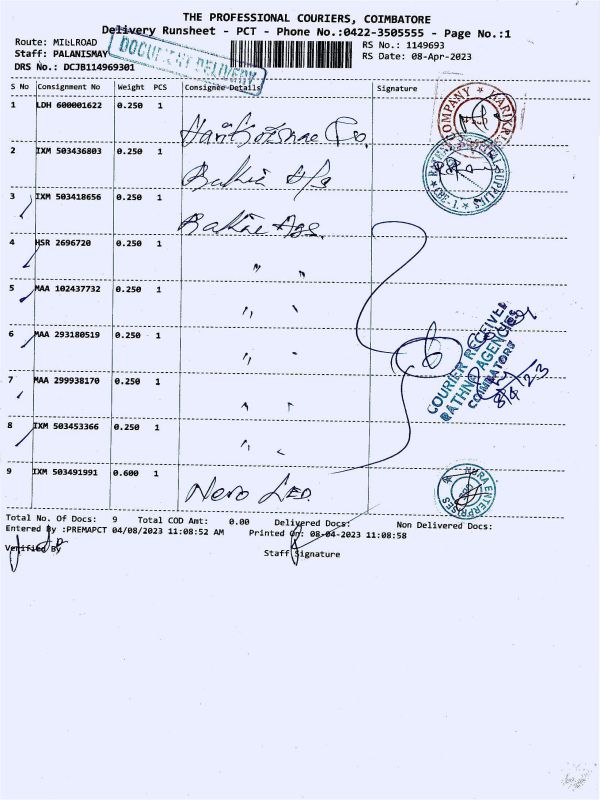 THE PROFESSIONAL COURIERS, COIMBATORE
Delivery Runsheet - PCT - Phone No.:0422-3505555 - Page No.:1
Route: MILLROAD
RS No.: 1149693
Staff: PALANISMAY
RS Date: 08-Apr-2023
DRS No.: DCJB114969301
DOCUMENT DELIVERY
S No Consignment No Weight PCS Consignee Details Signature
1 LDH 600001622 0.250 1
2 IXM 503436803 0.250 1
3 IXM 503418656 0.250 1
4 HSR 2696720 0.250 1
" "
5 MAA 102437732 0.250 1
" "
6 MAA 293180519 0.250 1
" "
7 MAA 299938170 0.250 1
" "
8 IXM 503453366 0.250 1
" "
9 IXM 503491991 0.600 1
6
COURIER RECEIVED
RATHNA AGENCIES
COIMBATORE
8/4/23
ENTERPRISES
Total No. Of Docs: 9 Total COD Amt: 0.00 Delivered Docs: Non Delivered Docs:
Entered By :PREMAPCT 04/08/2023 11:08:52 AM Printed On: 08-04-2023 11:08:58
Verified By
Staff Signature